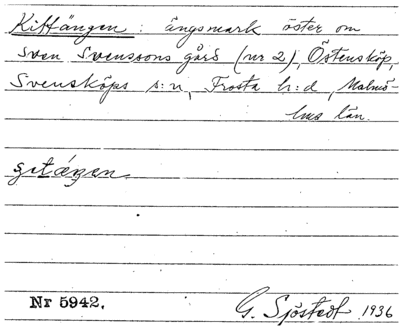 Kittängen: ängsmark öster om
Sven Svenssons gård (nr 2), Östensköp,
Svensköps s:n, Frosta h:d, Malmö-
hus län.
Nr 5942.
G. Sjöstedt 1936